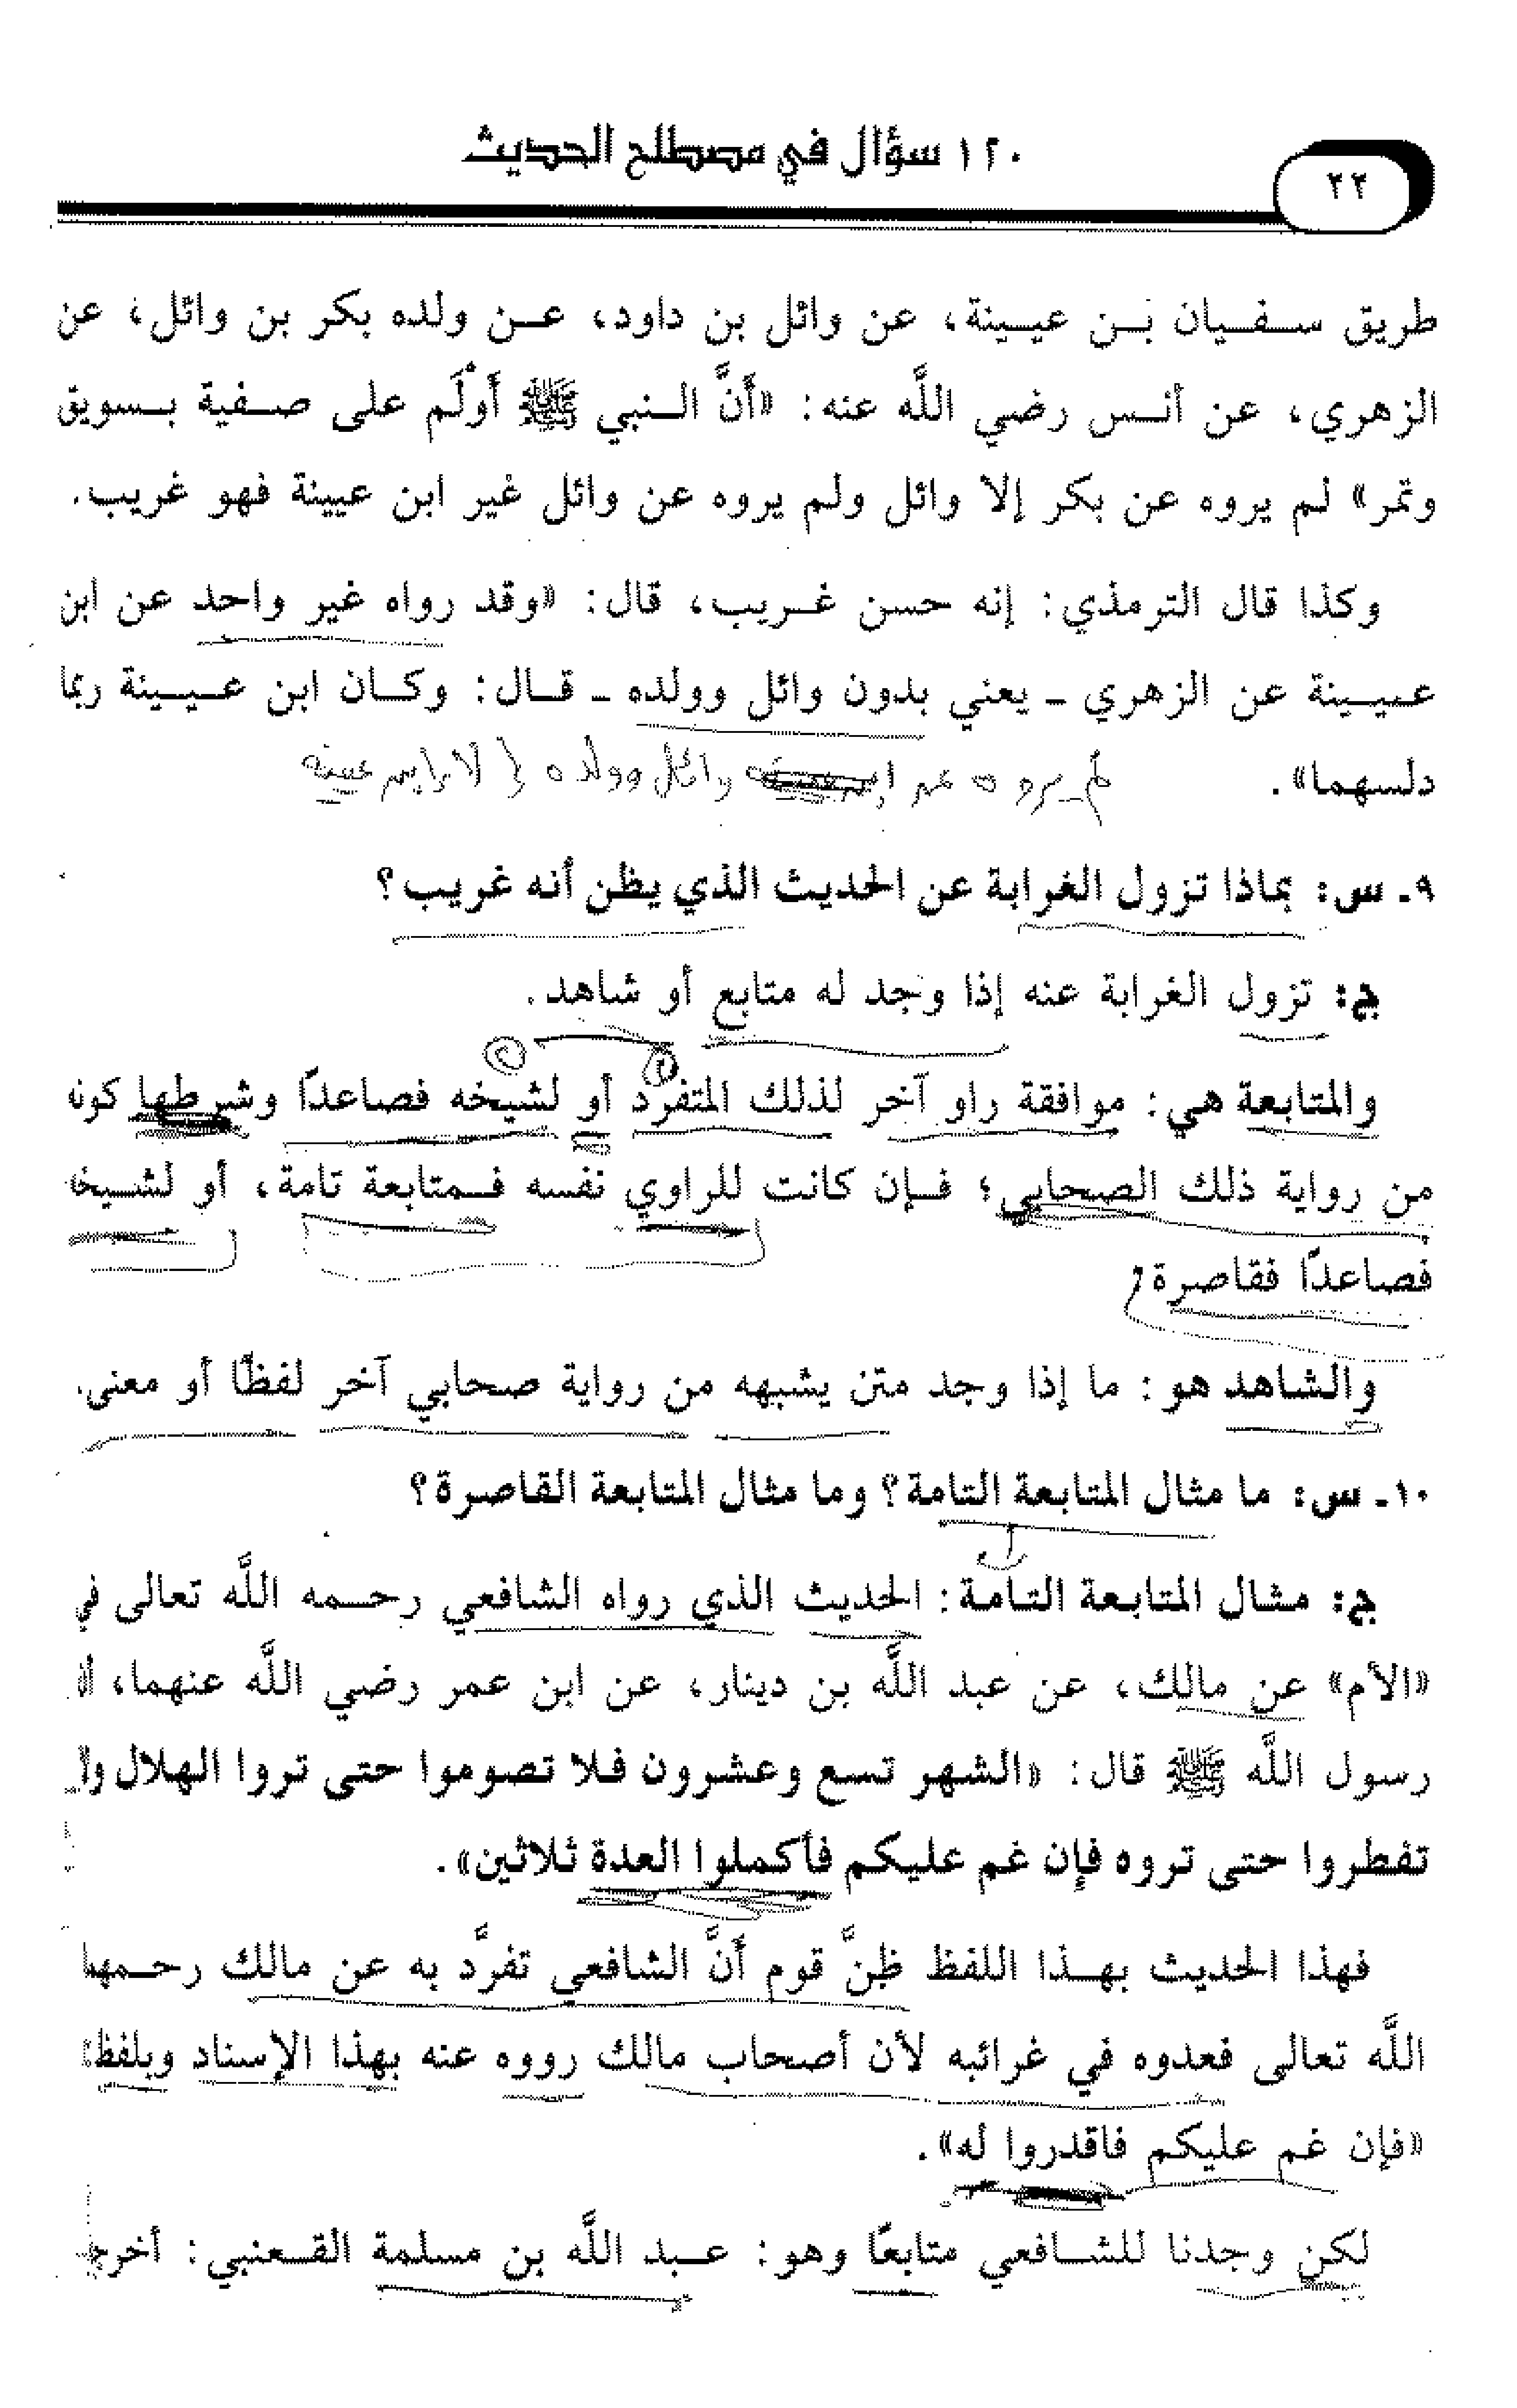 ١٢٠ سؤال في مصطلح الحديث
٢٢
طريق سفيان بن عيينة، عن وائل بن داود، عن ولده بكر بن وائل، عن
الزهري، عن أنس رضي اللَّه عنه: «أَنَّ النبي ﷺ أَوْلَم على صفية بسويق
وتمر» لم يروه عن بكر إلا وائل ولم يروه عن وائل غير ابن عيينة فهو غريب.
وكذا قال الترمذي: إنه حسن غريب، قال: «وقد رواه غير واحد عن ابن
عيينة عن الزهري ـ يعني بدون وائل وولده ـ قال: وكان ابن عيينة ربما
دلسهما».
لم يروه عن وائل وولده عيينة
٩ـ س: بماذا تزول الغرابة عن الحديث الذي يظن أنه غريب؟
ج: تزول الغرابة عنه إذا وجد له متابع أو شاهد.
١ ٢
والمتابعة هي: موافقة راو آخر لذلك المتفرد أو لشيخه فصاعدًا وشرطها كونه
من رواية ذلك الصحابي؛ فإن كانت للراوي نفسه فمتابعة تامة، أو لشيخه
فصاعدًا فقاصرة،
والشاهد هو: ما إذا وجد متن يشبهه من رواية صحابي آخر لفظًا أو معنى.
١٠ـ س: ما مثال المتابعة التامة؟ وما مثال المتابعة القاصرة؟
ج: مثال المتابعة التامة: الحديث الذي رواه الشافعي رحمه اللَّه تعالى في
«الأم» عن مالك، عن عبد اللَّه بن دينار، عن ابن عمر رضي اللَّه عنهما، أن
رسول اللَّه ﷺ قال: «الشهر تسع وعشرون فلا تصوموا حتى تروا الهلال ولا
تفطروا حتى تروه فإن غم عليكم فأكملوا العدة ثلاثين».
فهذا الحديث بهذا اللفظ ظنَّ قوم أَنَّ الشافعي تفرَّد به عن مالك رحمهما
اللَّه تعالى فعدوه في غرائبه لأن أصحاب مالك رووه عنه بهذا الإسناد وبلفظ:
«فإن غم عليكم فاقدروا له».
لكن وجدنا للشافعي متابعًا وهو: عبد اللَّه بن مسلمة القعنبي: أخرج